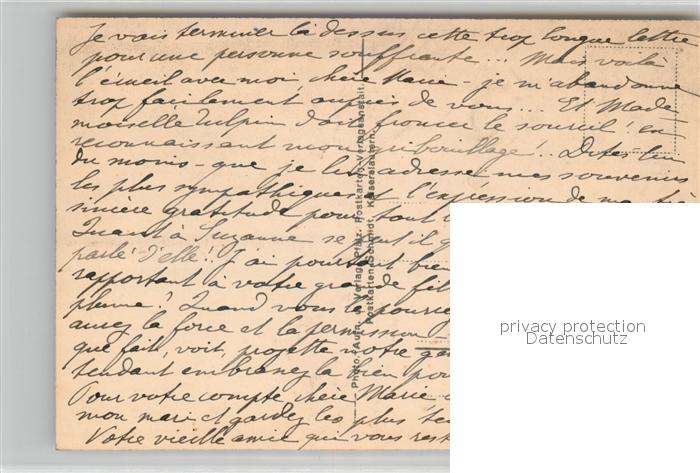 Je vais terminer là dessus cette trop longue lettre
pour une personne souffrante... Mais voilà
l'écueil avec moi, chère Marie - je m'abandonne
trop facilement auprès de vous... Et Made-
moiselle Tulpin doit froncer le sourcil! en
reconnaissant mon gribouillage!.. Dites lui
du moins - que je lui adresse mes souvenirs
les plus sympathiques et l'expression de ma
sincère gratitude pour tout
Quant à Suzanne se peut il
parlé d'elle!! J'ai pourtant bien
rapportant à votre grande
plume! Quand vous le
aurez la force et la permission
que fait, voit, projette votre
tendant embrassez la bien
Pour votre compte chère Marie
mon mari et gardez les plus
Votre vieille amie qui vous
Photo-Aufn. Verlag Pfälz. Postkarten-Verlagsanstalt,
Postkarten-Schmidt, Kaiserslautern.
privacy protection
Datenschutz